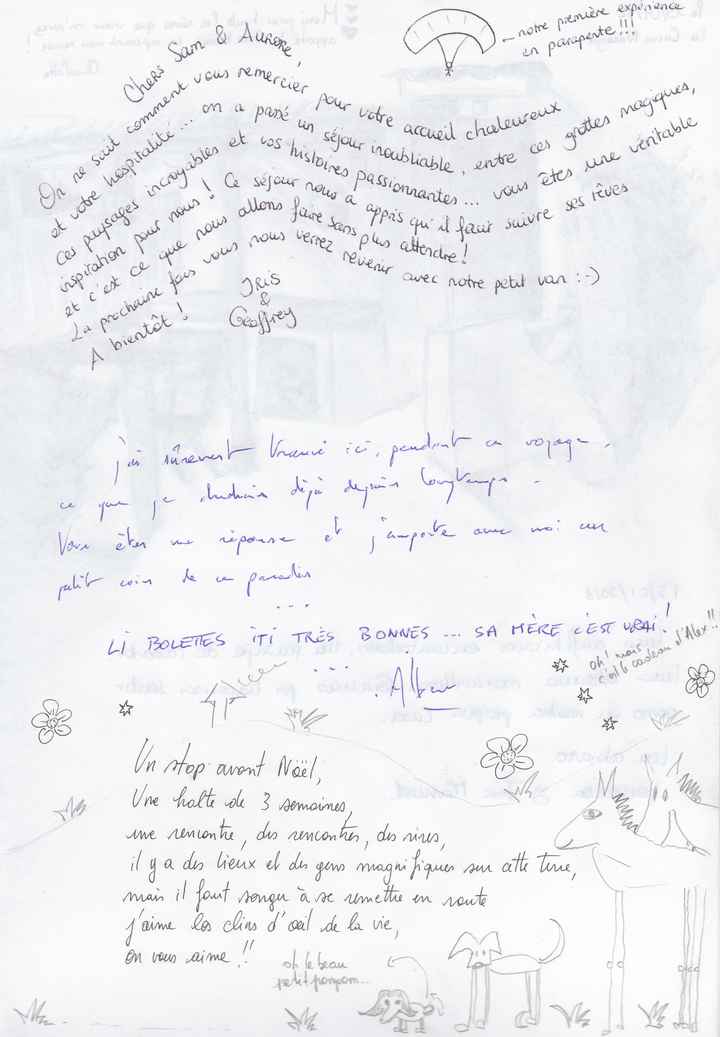 notre première expérience
en parapente !!!
Chers Sam & Aurore,
On ne sait comment vous remercier pour votre accueil chaleureux
et votre hospitalité... on a passé un séjour inoubliable, entre ces grottes magiques,
ces paysages incroyables et vos histoires passionnantes... vous êtes une véritable
inspiration pour nous ! Ce séjour nous a appris qu'il faut suivre ses rêves
et c'est ce que nous allons faire sans plus attendre !
La prochaine fois vous nous verrez revenir avec notre petit van :-)
A bientôt !
Iris
&
Geoffrey
j'ai sûrement trouvé ici, pendant ce voyage,
ce que je cherchais déjà depuis longtemps.
Vous êtes une réponse et j'emporte avec moi un
petit coin de ce paradis
...
LI BOLETTES ITI TRÈS BONNES ... SA MÈRE C'EST VRAI !
...
oh ! mais
c'est le cadeau d'Alex !!
Un stop avant Noël,
Une halte de 3 semaines,
une rencontre, des rencontres, des rires,
il y a des lieux et des gens magnifiques sur cette terre,
mais il faut songer à se remettre en route
j'aime les clins d'œil de la vie,
on vous aime !!
oh le beau
petit pompom...